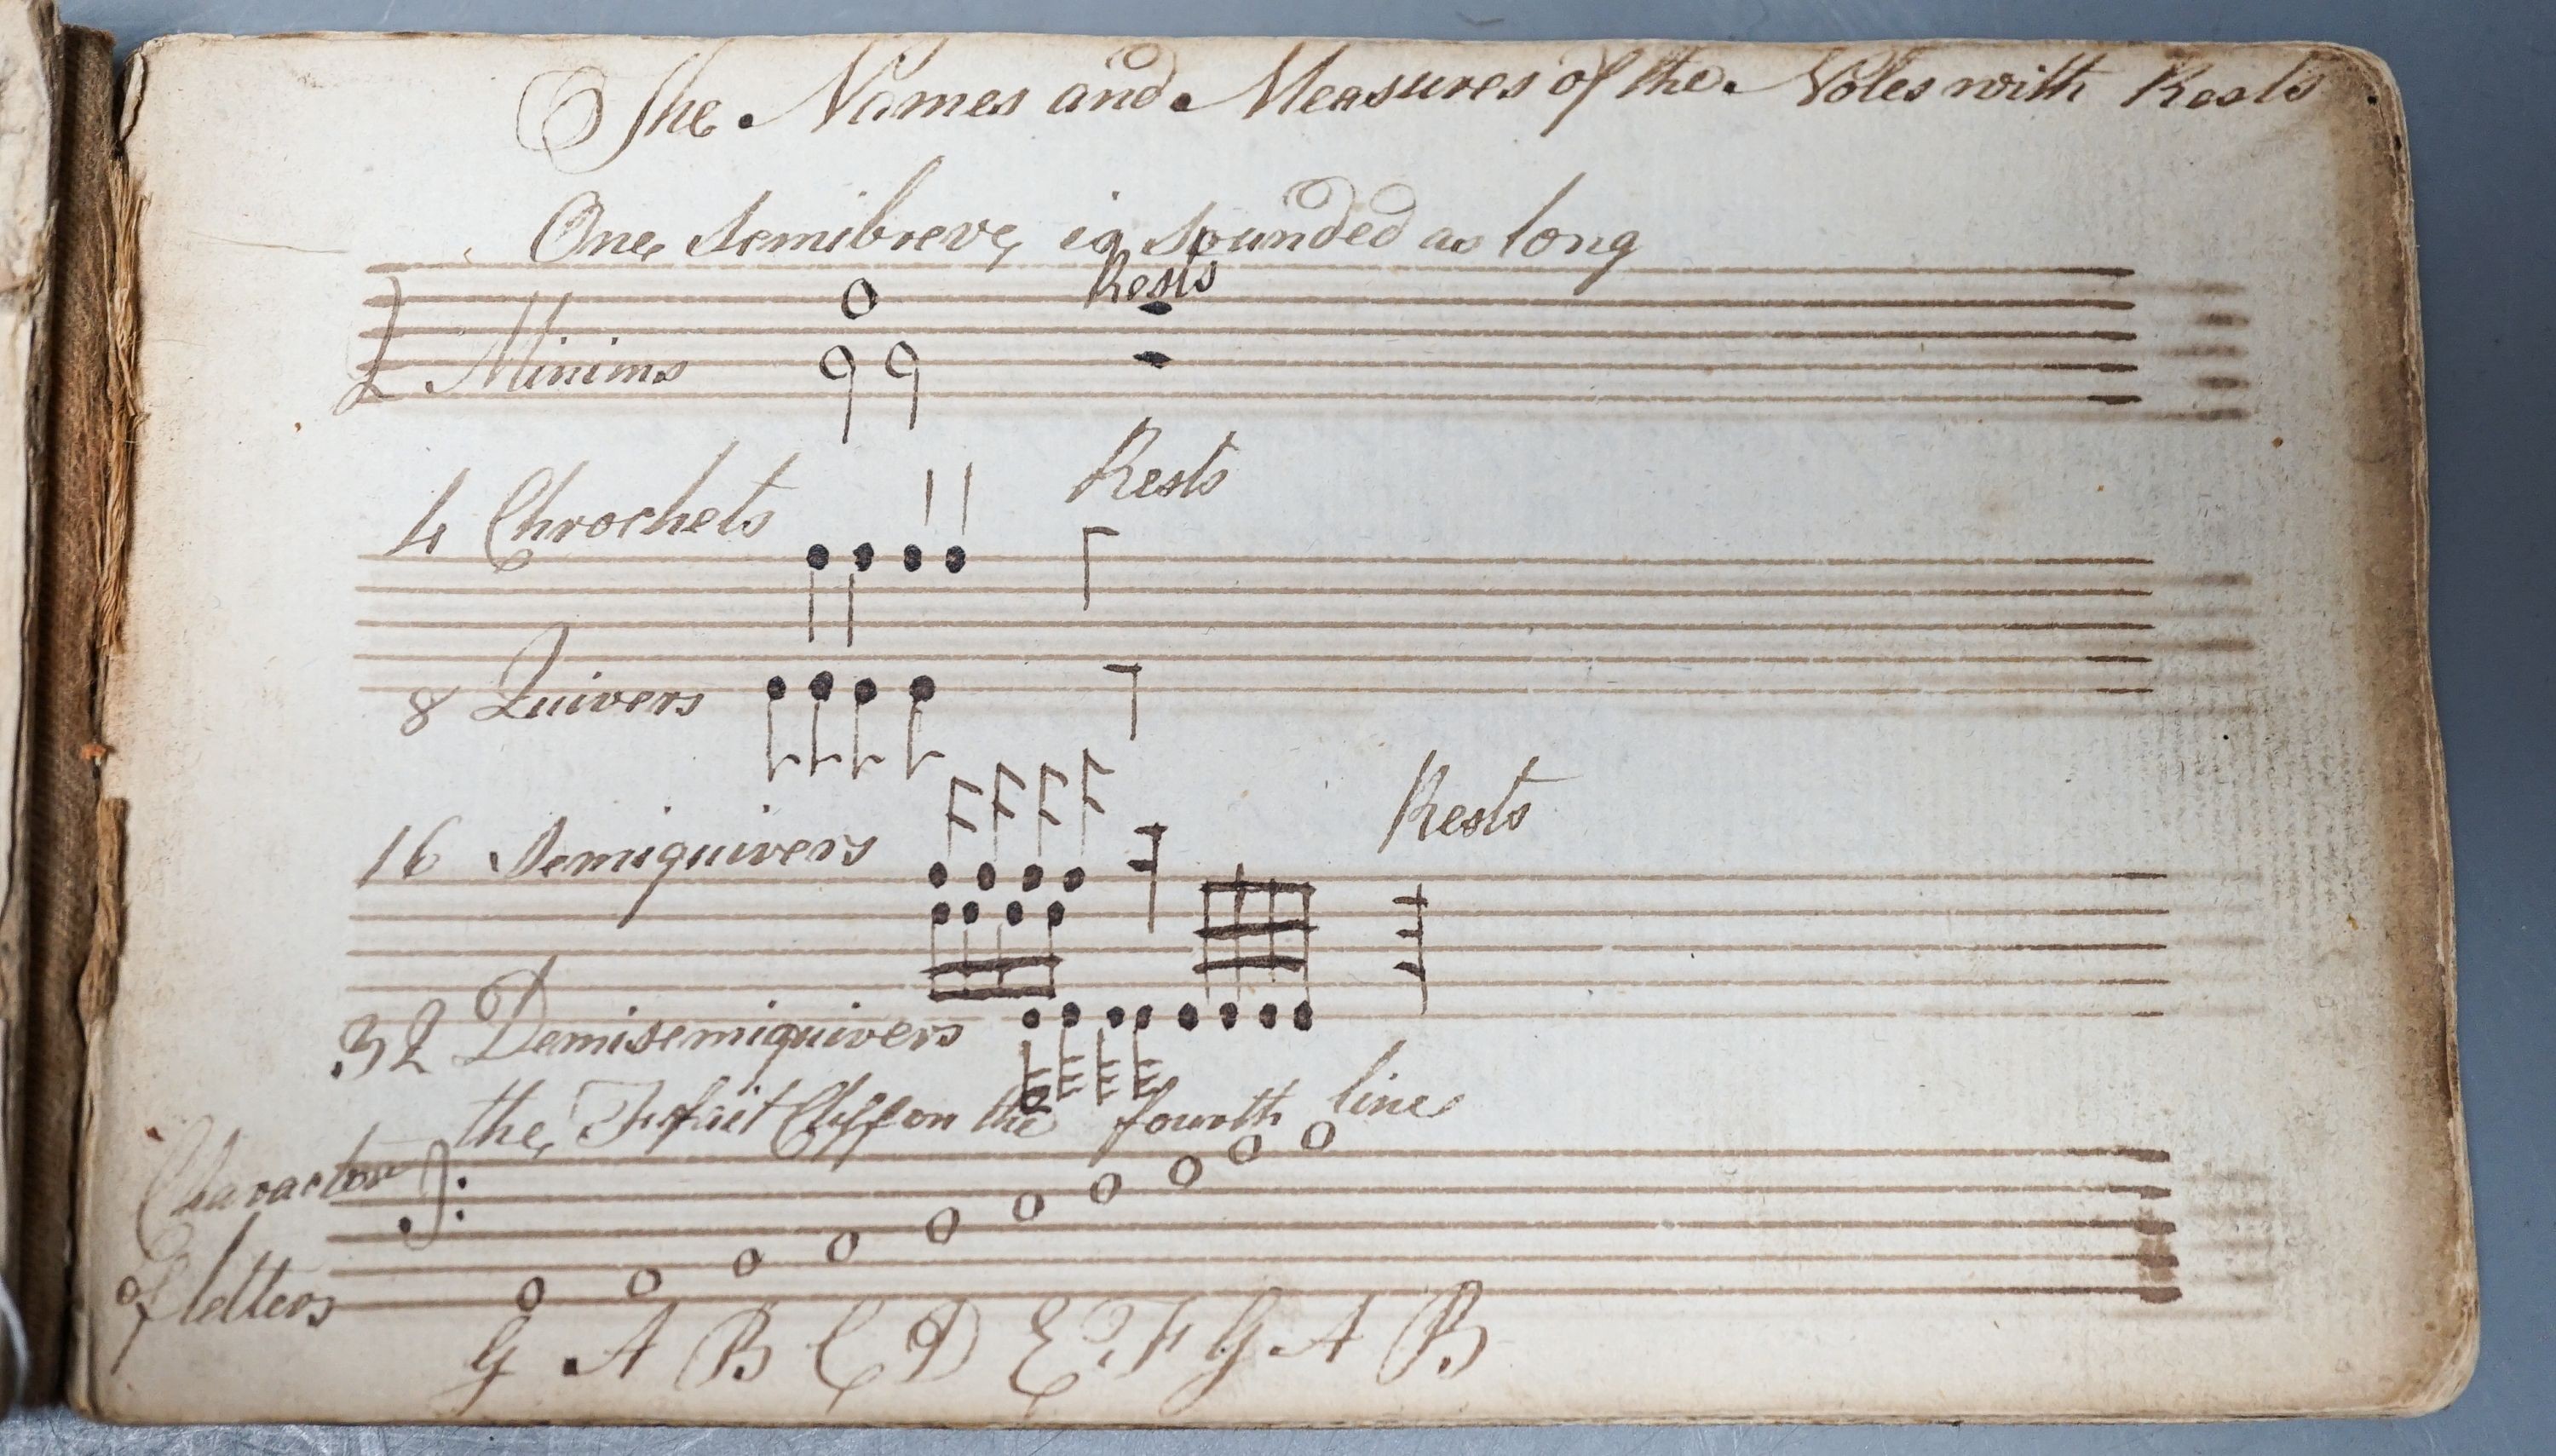 The Names and Measures of the Notes with Rests
One Semibreve, is sounded as long
Rests
2 Minims
4 Chrochets Rests
8 Quivers
16 Semiquivers Rests
32 Demisemiquivers
the, Cliff on the fourth line
Character
of letters
G A B C D E F G A B